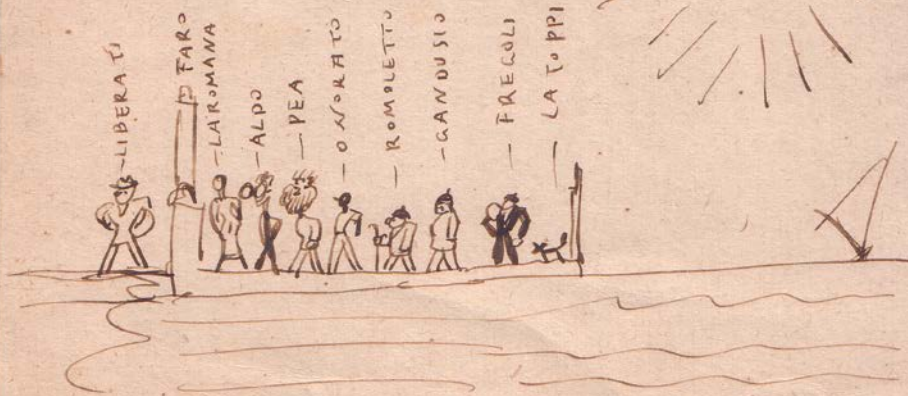 LIBERATI
FARO
LA ROMANA
ALDO
PEA
ONORATO
ROMOLETTO
GANDUSIO
FREGOLI
LA TOPPI